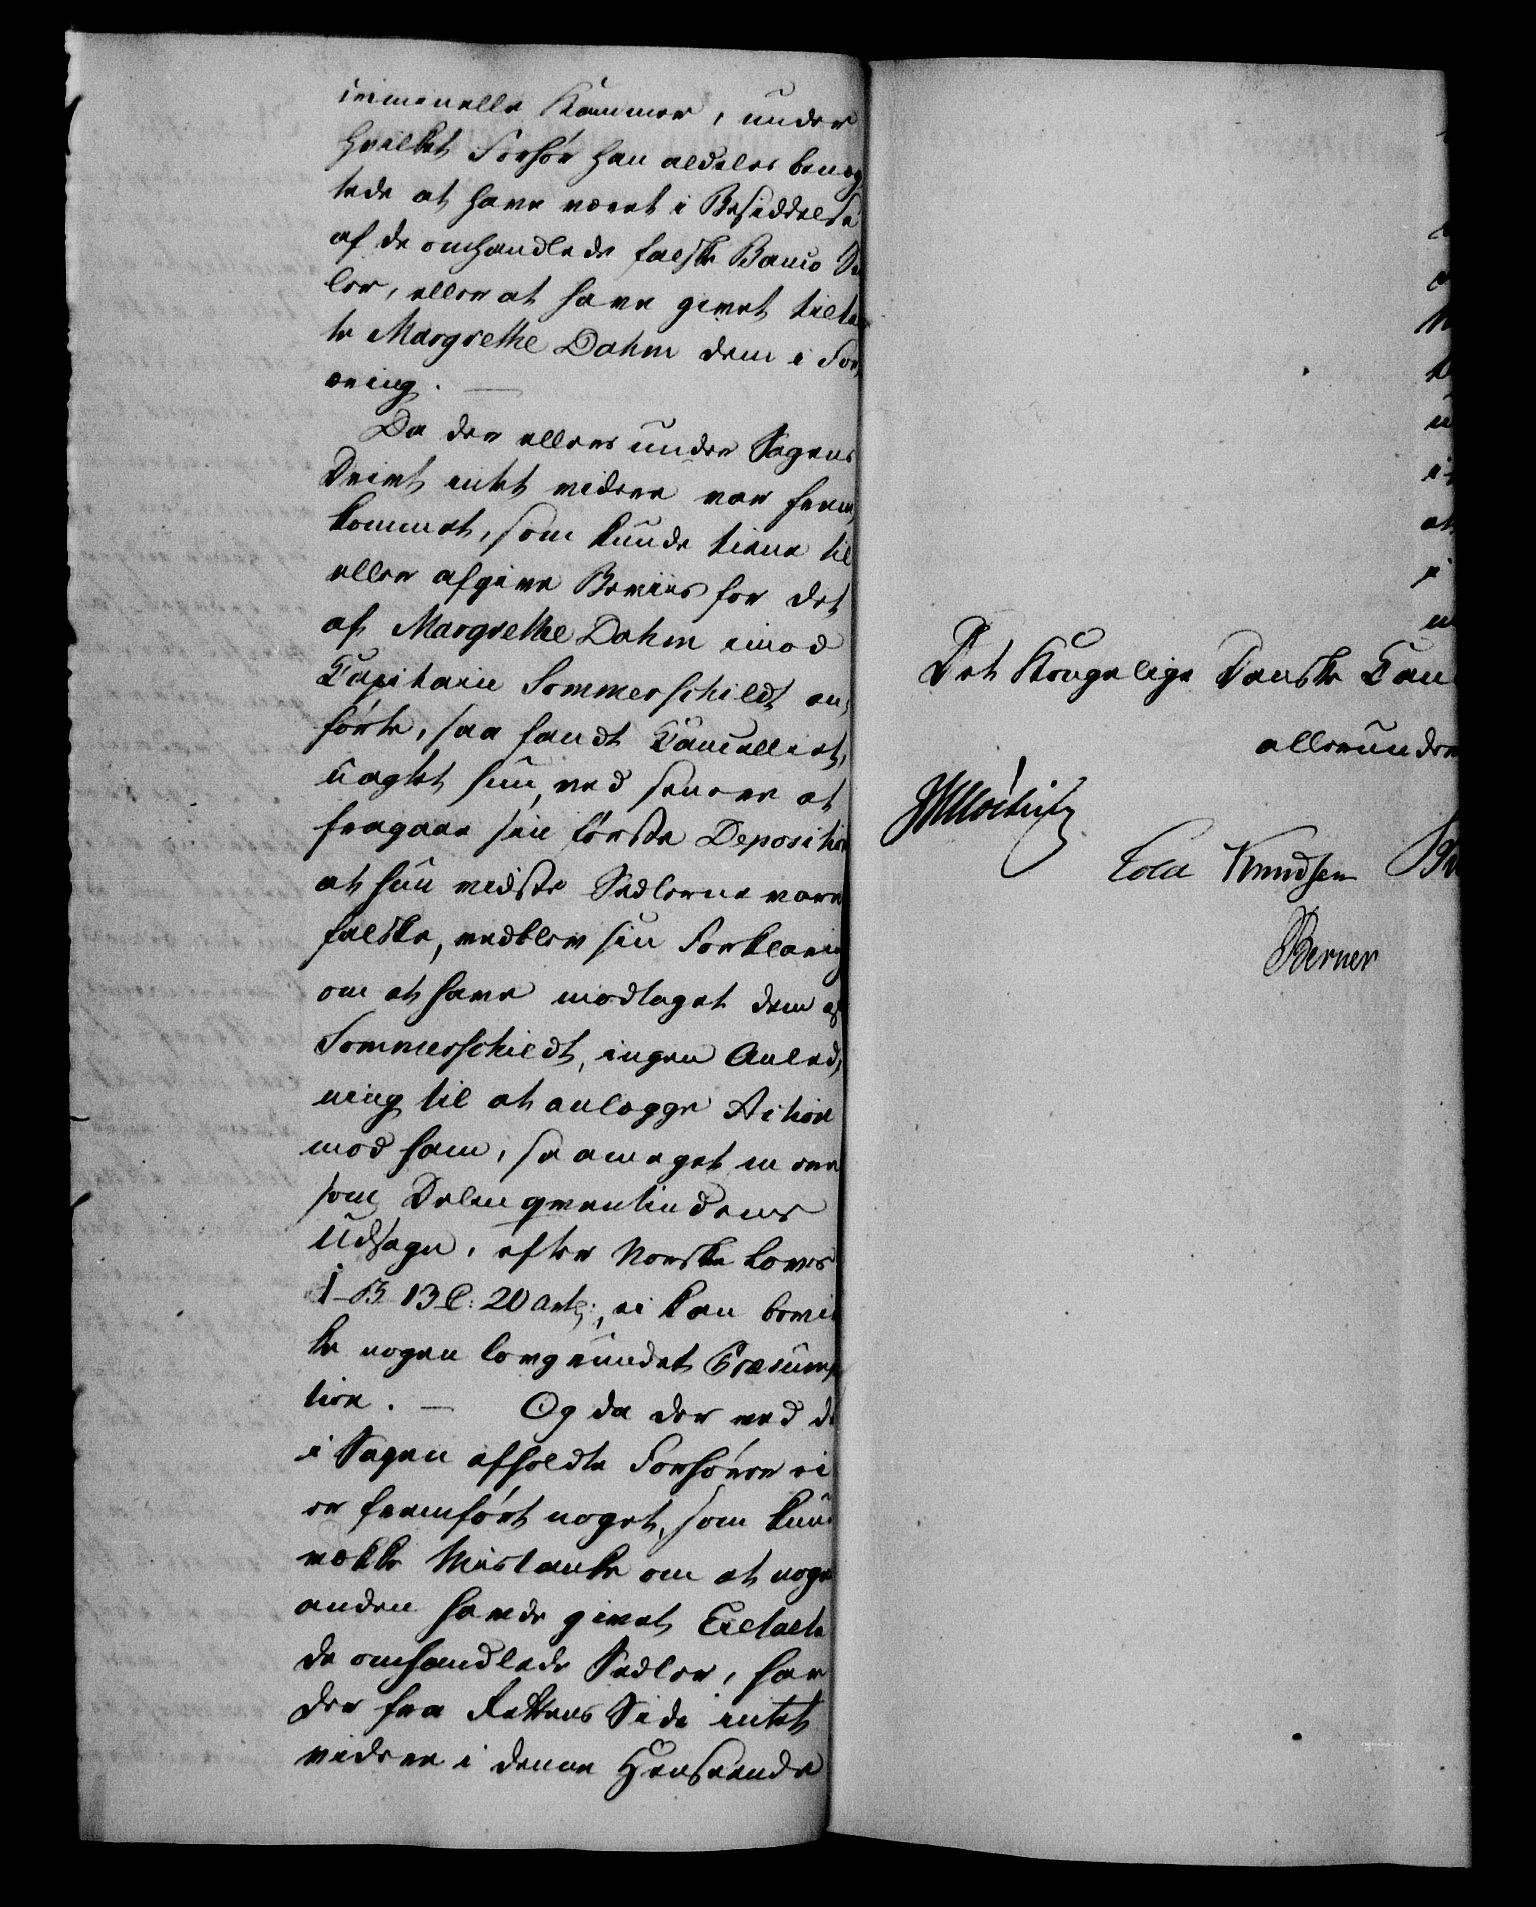 iminelle Kammer, under
hvilket Forhør han aldeles benæg
tede at have været i Besiddelse
af de omhandlede falske Banco Se
ler, eller at have givet tiltal
te Margrethe Dahm dem i For,
æring. —
Da der ellers under Sagens
Drivt intet videre var frem,
kommet, som kunde tiene til
eller afgive Beviis for det
af Margrethe Dahm imod
Capitain Sommerschildt an,
førte, saa fandt Cancelliet,
uagtet hun, ved senere at
fragaae sin første Deposition
at hun vidste Sedlerne vare
falske, vedblev sin Forklaring
om at have modtaget dem af
Sommerschildt, ingen Anled,
ning til at anlægge Action
mod ham, saameget mere
som Delinqventindens
Udsagn, efter Norske Lovs
1 B 13 C: 20 Art:, ei kan bevir
ke nogen lovgrundet Præsump
tion. — Og da der ved de
i Sagen afholdte Forhører ei
er fremført noget, som kund
vække Mistanke om at nogen
anden havde givet Tiltalte
de omhandlede Sedler, har
der fra Rettens Side intet
videre i denne Henseende
Det Kongelige Danske Can
allerunder
Cold Knudsen
Berner